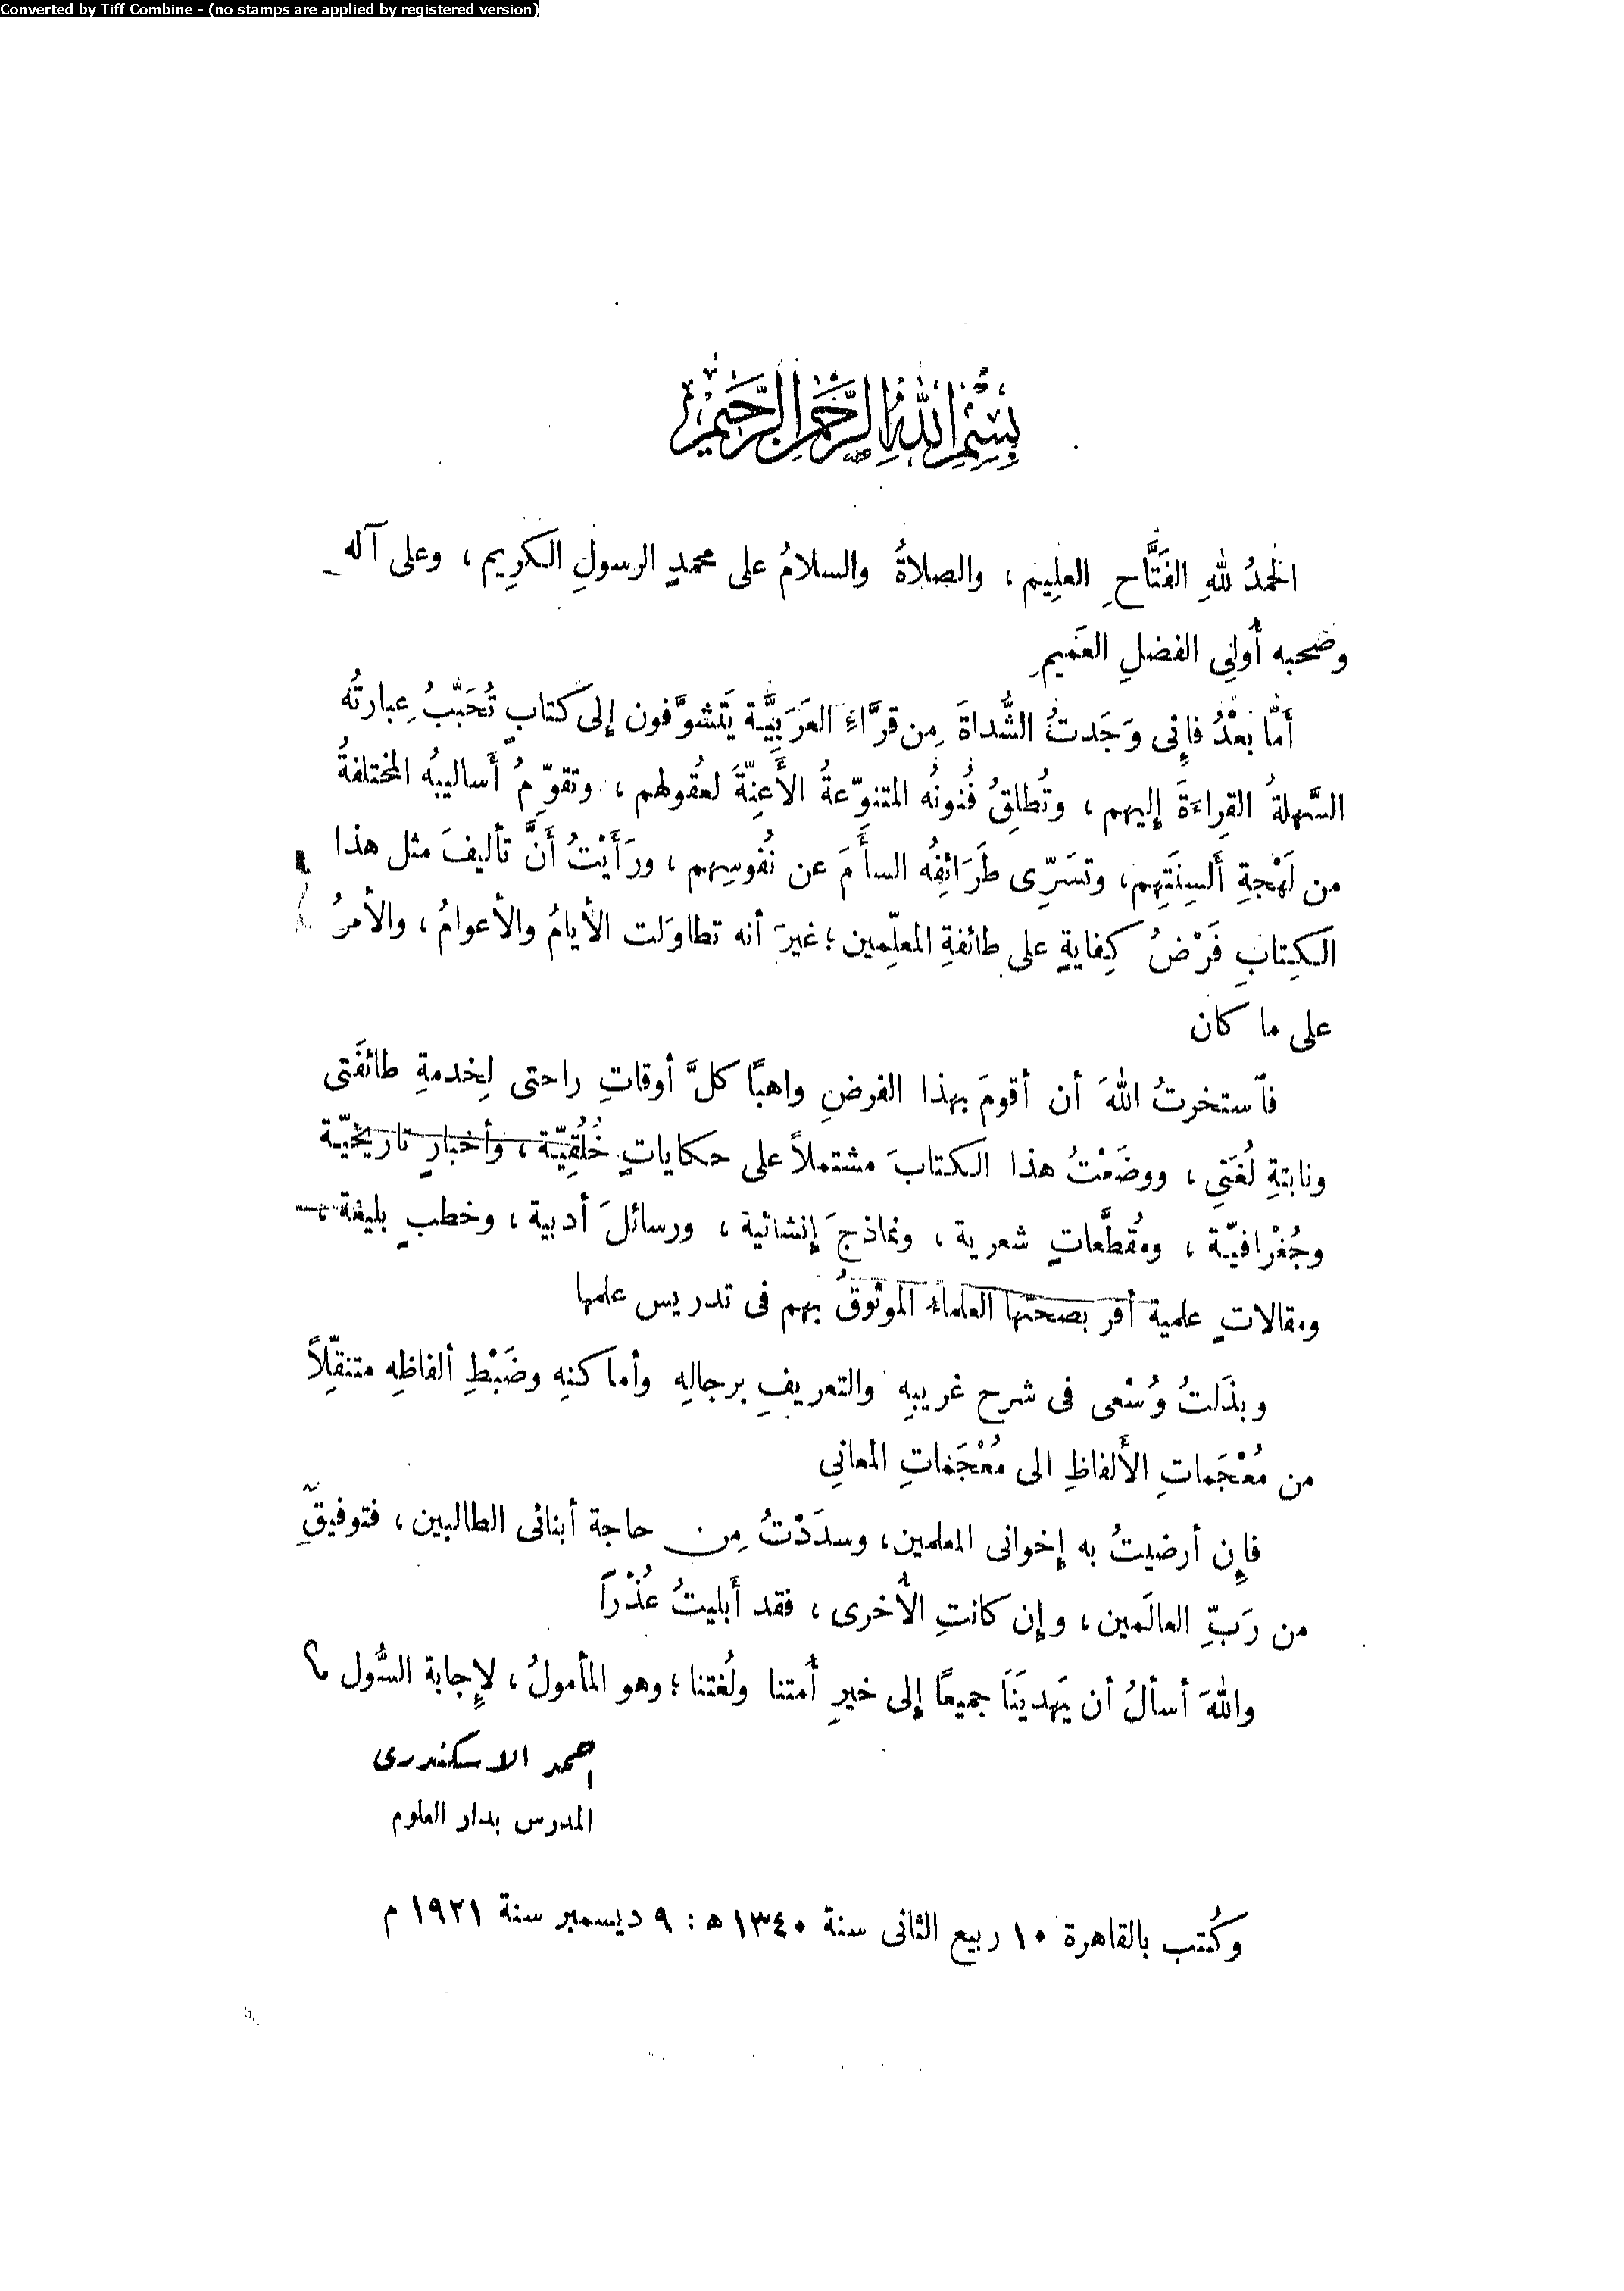 Converted by Tiff Combine - (no stamps are applied by registered version)
بِسْمِ اللهِ الرَّحْمٰنِ الرَّحِيمِ
الحمدُ للهِ الفَتَّاحِ العلِيمِ ، والصلاةُ والسلامُ على محمدٍ الرسولِ الكرِيمِ ، وعلى آله
وصحبه أُولِى الفضلِ العَمِيمِ
أَمَّا بعْدُ فإِنى وَجَدتُ الشُّداةَ مِن قرَّاءِ العَرَبِيَّة يَتَشوَّفون إلى كتابٍ تُحَبِّبُ عِبارتُه
السَّهلةُ القِراءَةَ إليهم ، وتُطلِقُ فُنونُه المتنوِّعةُ الأَعِنَّةَ لعقُولهم ، وتقوِّمُ أَساليبُه المختلفةُ
من لَهْجةِ أَلسِنَتِهم ، وتسَرِّى طَرَائفِهُ السأَمَ عن نُفوسِهم ، ورَأَيْتُ أَنَّ تأليفَ مثل هذا
الكِتابِ فَرْضُ كِفايةٍ على طائفةِ المعلِّمين ؛ غيرَ أنه تطاوَلت الأيامُ والأعوامُ ، والأمرُ
على ما كان
فآستخرتُ اللهَ أن أقومَ بهذا الفرضِ واهبًا كلَّ أوقاتِ راحتى لِخدمةِ طائفَتى
ونابتةِ لُغَتِى ، ووضَعْتُ هذا الكتابَ مشتملاً على حكاياتٍ خُلُقِيّة ، وأخبارٍ تاريخيّة
وجُغْرافيّة ، ومُقطَّعاتٍ شعرية ، ونماذجَ إنشائية ، ورسائلَ أدبية ، وخطبٍ بليغة ،
ومقالاتٍ علمية أقر بصحتها العلماء الموثوقُ بهم فى تدريس علمها
وبذَلتُ وُسْعى فى شرح غريبِهِ والتعريفِ برجالِهِ وأماكنِهِ وضَبْطِ ألفاظِهِ متنقِّلاً
من مُعْجَماتِ الأَلفاظِ الى مُعْجَماتِ المعانِي
فإِن أرضيتُ به إخوانى المعلمين ، وسدَدْتُ مِن حاجة أبنائى الطالبين ، فتوفيقٌ
من رَبِّ العالَمين ، وإن كانتِ الأُخرى ، فقد أَبليتُ عُذْرًا
واللهَ أسألُ أن يَهدِيَنَا جميعًا إلى خيرِ أُمتنا ولُغتنا ؛ وهو المأمولُ ، لإِجابة السُّول ؟
احمد الاسكندرى
المدرس بدار العلوم
وكُتب بالقاهرة ١٠ ربيع الثانى سنة ١٣٤٠ ﻫ : ٩ ديسمبر سنة ١٩٢١ م